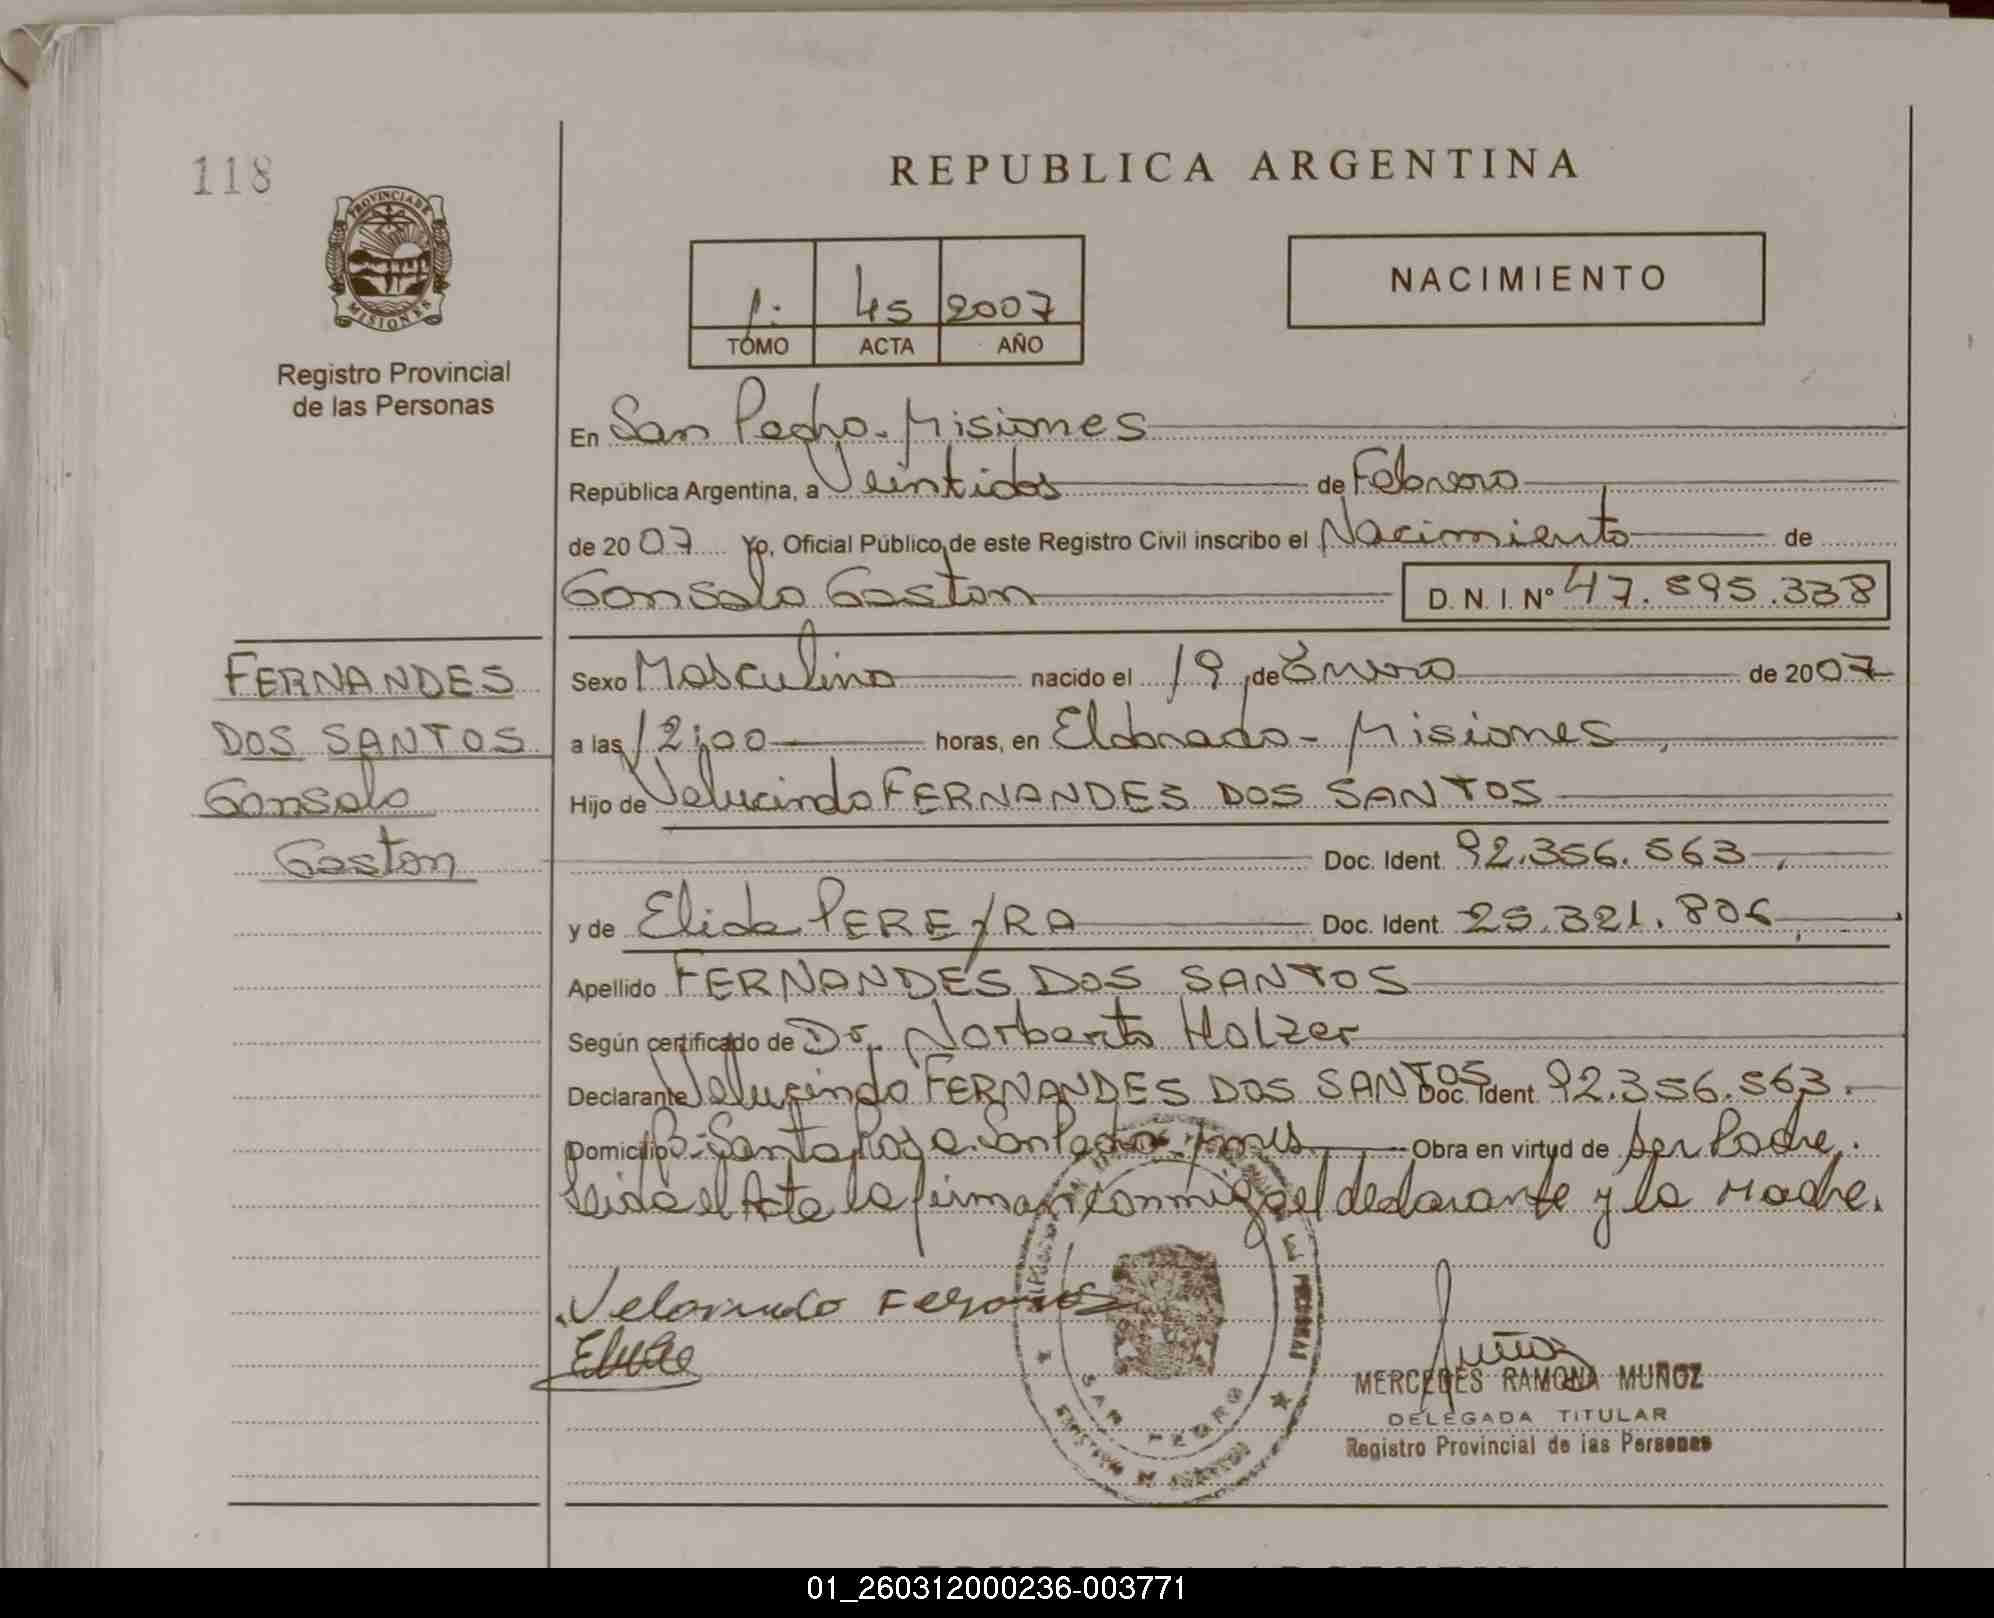 118
REPUBLICA ARGENTINA
PROVINCIA DE
MISIONES
Registro Provincial
de las Personas
1. 45 2007
TOMO ACTA AÑO
NACIMIENTO
En San Pedro - Misiones
República Argentina, a Veintidos de Febrero
de 2007 Yo, Oficial Público de este Registro Civil inscribo el Nacimiento de
Gonsalo Gaston D. N. I. Nº 47.895.338
FERNANDES
DOS SANTOS
Gonsalo
Gaston
Sexo Masculino nacido el 19 de Enero de 2007
a las 12:00 horas, en Eldorado - Misiones
Hijo de Velucindo FERNANDES DOS SANTOS
Doc. Ident. 92.356.563
y de Elida PEREYRA Doc. Ident. 25.321.806
Apellido FERNANDES DOS SANTOS
Según certificado de Dr. Norberto Holzer
Declarante Velucindo FERNANDES DOS SANTOS Doc. Ident 92.356.563.
Domicilio Bº Santa Rosa San Pedro Mnes Obra en virtud de ser Padre.
Leida el Acta la firman conmigo el declarante y la Madre.
SAN PEDRO
MERCEDES RAMONA MUÑOZ
DELEGADA TITULAR
Registro Provincial de las Personas
01_260312000236-003771